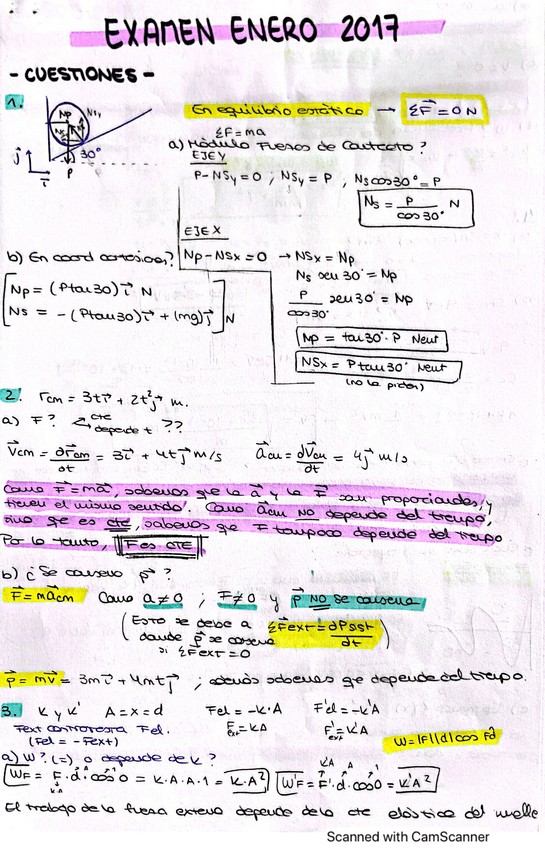 EXAMEN ENERO 2017
- CUESTIONES -
1.
Np
NSy
Ns
30°
P
j
i
En equilibrio estático → ΣF = 0 N
ΣF = ma
a) Módulo Fuerzas de Contacto?
EJE Y
P - NSy = 0 ; NSy = P ; Ns cos 30° = P
Ns = P / cos 30° N
EJE X
b) En coord cartesianas?
Np - NSx = 0 → NSx = Np
Ns sen 30° = Np
P / cos 30° sen 30° = Np
Np = (P tan 30) i N
Ns = - (P tan 30) i + (mg) j N
Np = tan 30° · P Newt
NSx = P tan 30° Newt
(no la piden)
2. rcm = 3t i + 2t² j m.
a) F? cte depende t ??
Vcm = drcm / dt = 3 i + 4t j m/s acm = dVcm / dt = 4 j m/s
Como F = ma, sabemos que la a y la F son proporcionales, y
tienen el mismo sentido. Como acm NO depende del tiempo,
sino que es cte, sabemos que F tampoco depende del tiempo
Por lo tanto, F es CTE
b) ¿Se conserva p?
F = m acm Como a ≠ 0 ; F ≠ 0 y p NO se conserva
(Esto se debe a ΣFext = dPsist / dt
donde p se conserva
si ΣFext = 0)
p = mv = 3m i + 4mt j ; además sabemos que depende del tiempo.
3. K y K' A = x = d Fel = -K·A F'el = -K'A
Fext contrarresta Fel. Fext = KA F'ext = K'A
(Fel = - Fext) W = |F| |d| cos Fd
a) W? (=) o depende de K?
WF = F · d · cos 0 = K·A·A·1 = K·A² W'F = F' · d · cos 0 = K'A²
El trabajo de la fuerza externa depende de la cte elástica del muelle
Scanned with CamScanner